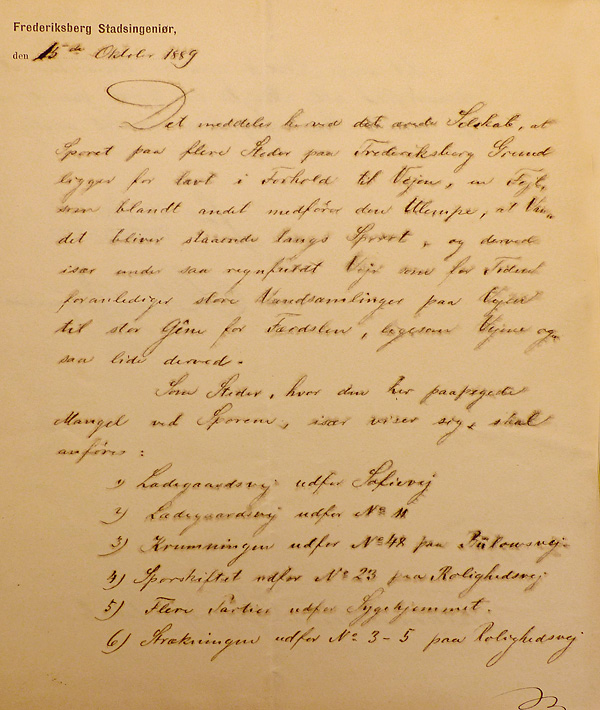 Frederiksberg Stadsingeniør,
den 15de Oktober 1889
Det meddeles herved det ærede Selskab, at
Sporet paa flere Steder paa Frederiksberg Grund
ligger for lavt i Forhold til Vejen, en Fejl,
som blandt andet medfører den Ulempe, at Van-
det bliver staaende langs Sporet, og derved
især under saa regnfuldt Vejr som for Tiden
foranlediger store Vandsamlinger paa Vejen
til stor Gêne for Færdslen, ligesom Vejene og-
saa lide derved.
Som Steder, hvor den her paapegede
Mangel ved Sporene, især viser sig, skal
anføres:
1) Ladegaardsvej udfor Sofievej
2) Ladegaardsvej udfor No
3) Krumningen udfor No 42 paa Bülowsvej
4) Sporskiftet udfor No 23 paa Rolighedsvej
5) Flere Partier udfor Sygehjemmet.
6) Strækningen udfor No 3-5 paa Rolighedsvej